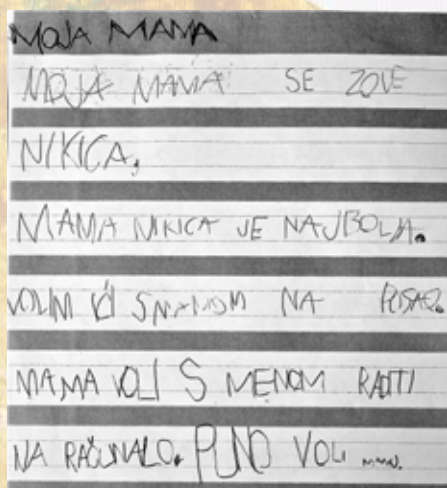 MOJA MAMA
MOJA MAMA SE ZOVE
NIKICA.
MAMA NIKICA JE NAJBOLJA.
VOLIM IĆI S MAMOM NA
MAMA VOLI S MENOM RADITI
NA RAČUNALO. PUNO VOLI